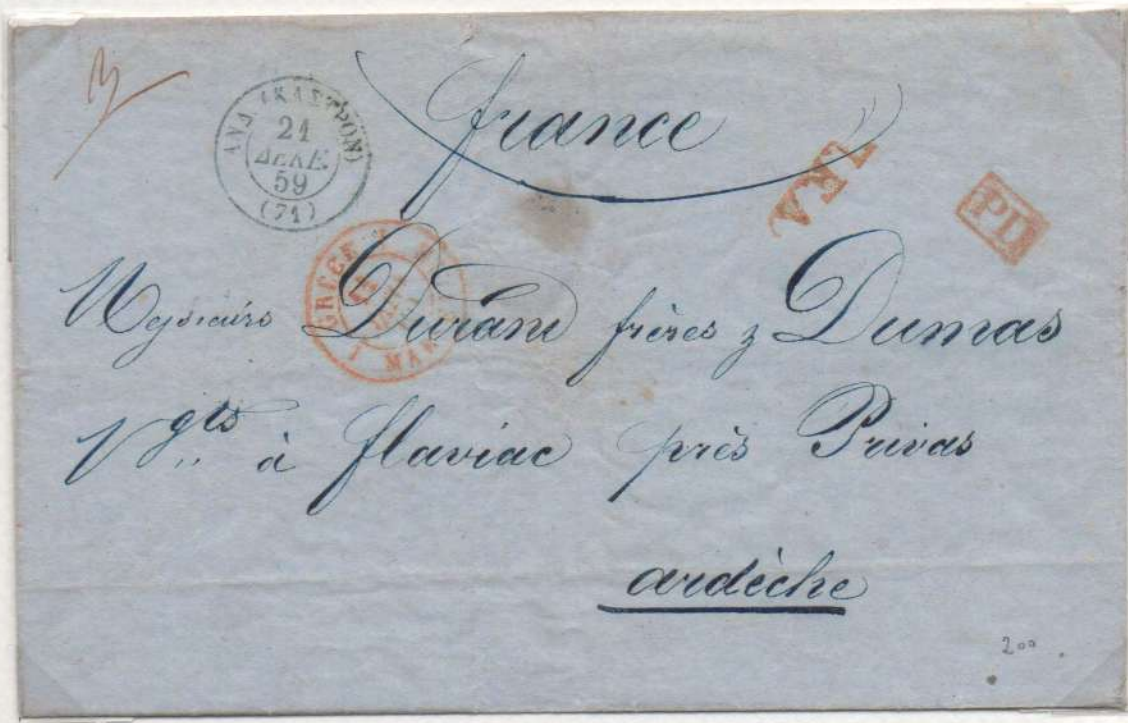 france
ΑΝΔ. (ΚΑΣΤΡΟΝ)
21
ΔΕΚΕ.
59
(71)
PD
GRÈCE
MAR
Messieurs Durand frères & Dumas
Ngts à flaviac près Privas
ardèche
200